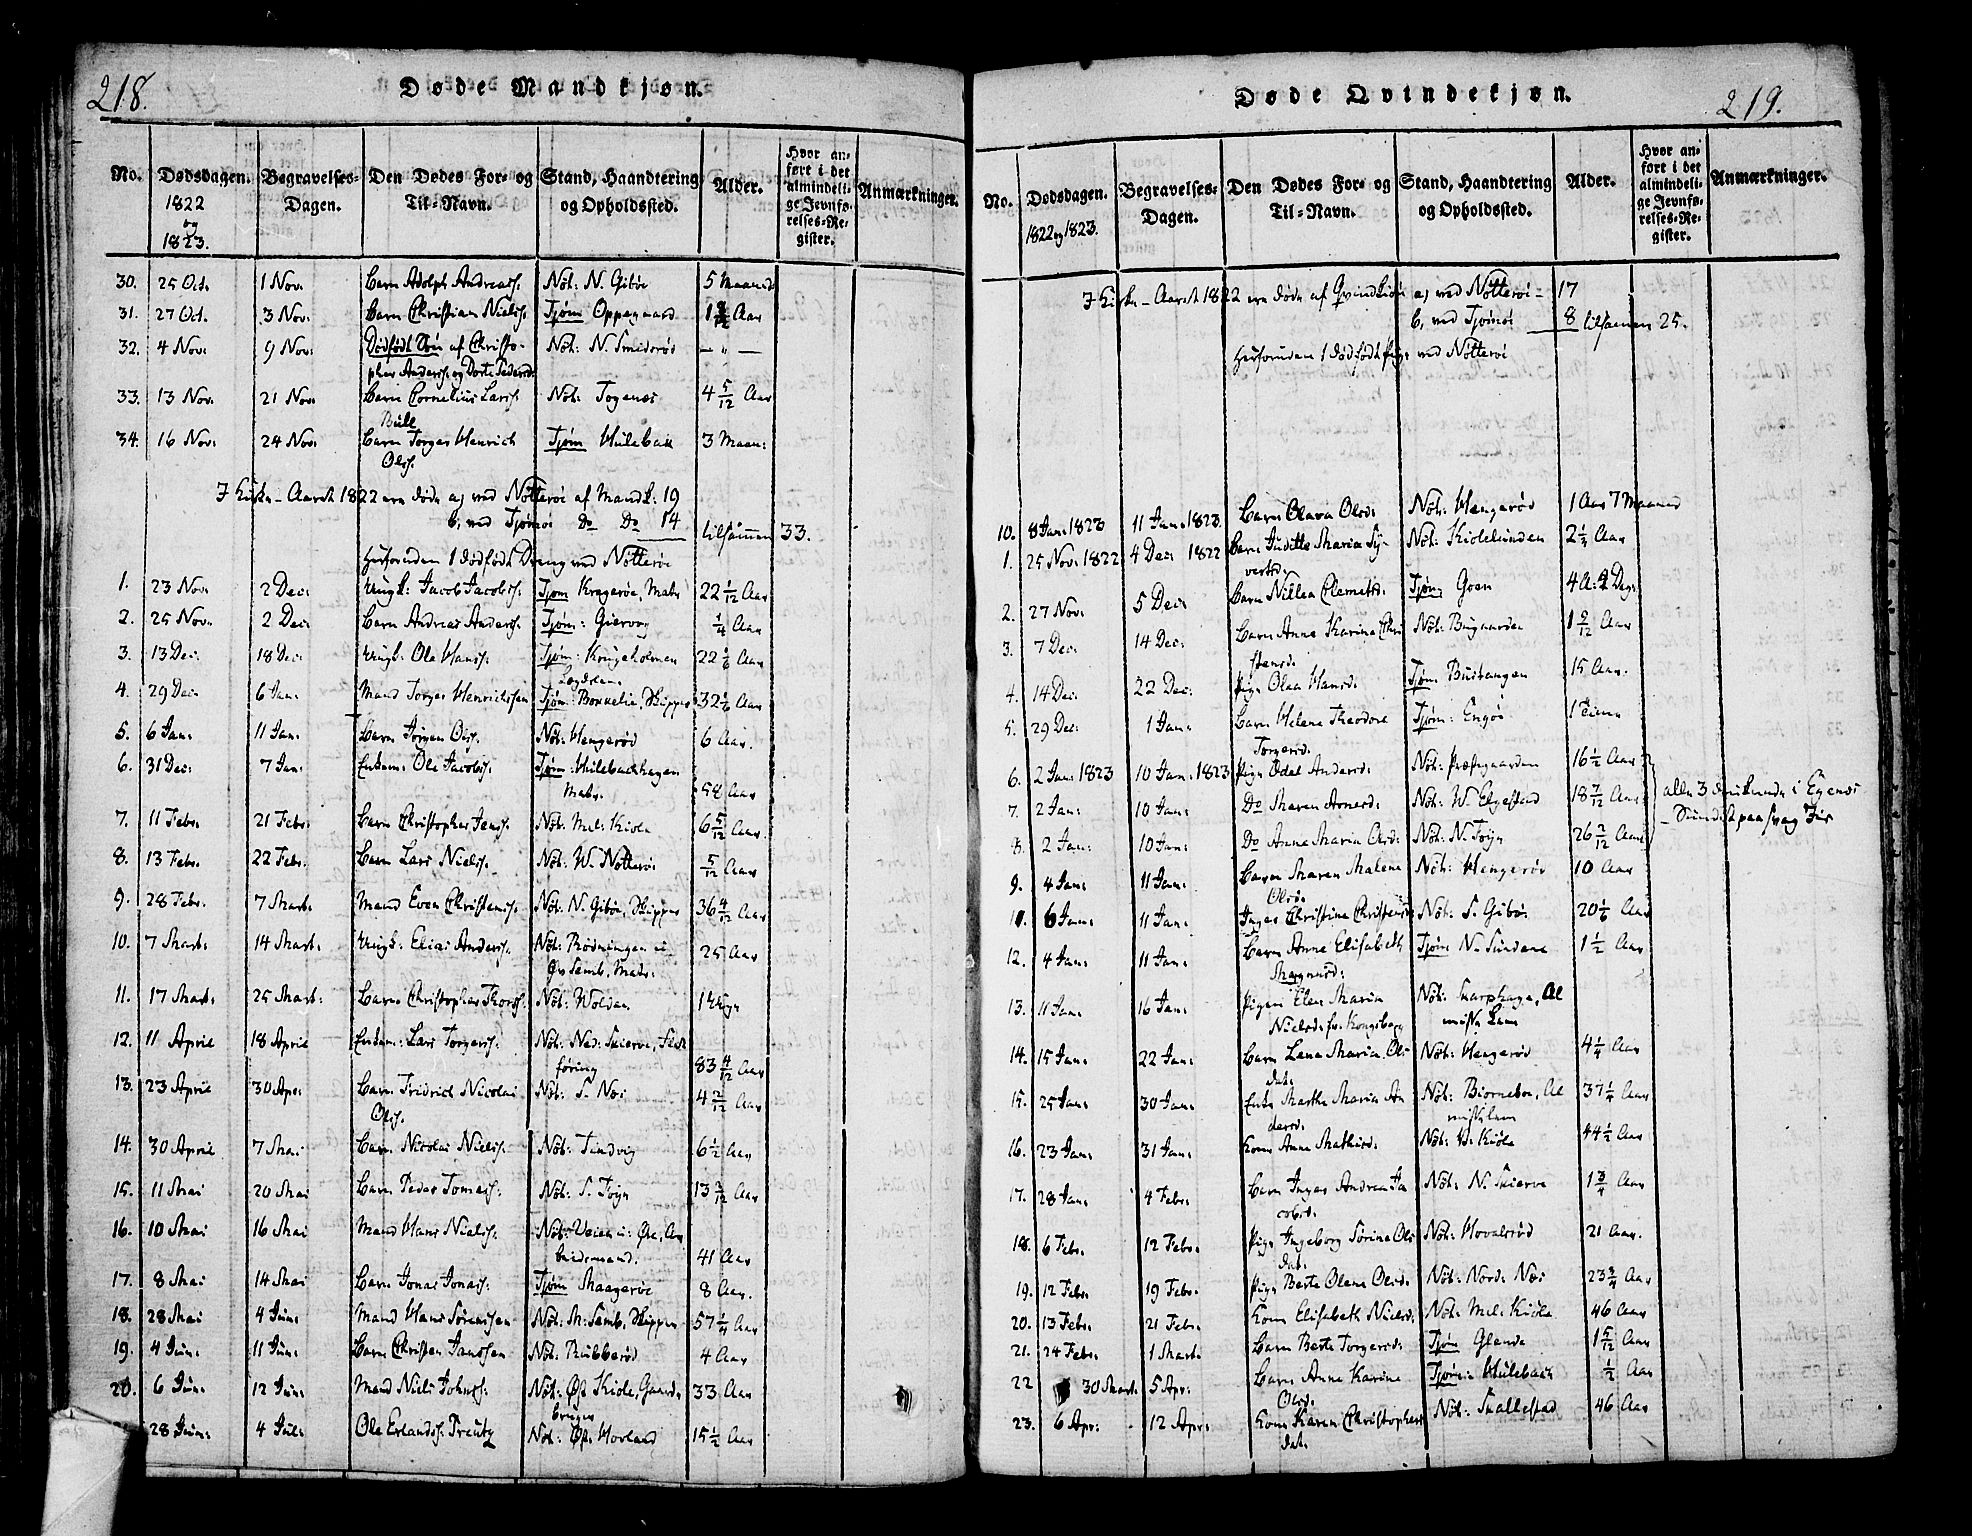 218.
Døde Mandkjøn.
No.
Dødsdagen.
1822
og
1823.
Begravelses-
Dagen.
Den Dødes For- og
Til-Navn.
Stand, Haandtering
og Opholdssted.
Alder.
Hvor an-
ført i det
almindeli-
ge Jevnfø-
relses-Re-
gister.
Anmærkninger.
30. 25 Oct. 1 Nov. Barn Adolph Andreass. Nöt: N. Gibøe 5 Maaned
31. 27 Oct. 3 Nov. Barn Christian Nielss. Tjøm Oppegaard Aar
32. 4 Nov. 9 Nov. Dødfödt Sön af Christo- Nöt: N. Smiderød — " —
pher Anderss. og Dorte Pedersd.
33. 13 Nov. 21 Nov. Barn Cornelius Larss. Nöt: Togenes 4 5/12 Aar
Bull
34. 16 Nov. 24 Nov. Barn Torger Henrich Tjøm Hulebak 3 Maan:
Olss.
I Kirke-Aaret 1822 ere døde a, ved Nötterøe af Mandk: 19
b, ved Tjømøe Do Do 14 tilsammen 33.
Herforuden 1 dödfödt Dreng ved Nötterøe
1. 23 Nov. 2 Dec: Ungk: Jacob Jacobss. Tjøm Kragerøe, Matr. 22 1/12 Aar
2. 25 Nov. 2 Dec: Barn Andreas Anderss. Tjøm: Giervog 1/4 Aar
3. 13 Dec: 18 Dec: Ungk: Ole Hanss. Tjøm: Krugeholmen 22 1/6 Aar
4. 29 Dec: 6 Jan. Mand Torger Henrichssen Tjøm: Bonkelie, Skipper 32 1/6 Aar
5. 6 Jan. 11 Jan. Barn Jörgen Olss. Nöt: Hengerød 6 Aar.
6. 31 Dec: 7 Jan. Enkem: Ole Jacobss. Tjøm: Hulebakhagen
Matr. 58 Aar
7. 11 Febr. 21 Febr. Barn Christopher Jenss. Nöt: Mel: Kiøle 6 5/12 Aar
8. 13 Febr. 22 Febr. Barn Lars Nielss. Nöt: W. Nötterøe 5/12 Aar
9. 28 Febr. 7 Mart. Mand Even Christenss. Nöt: N. Gibøe, Skipper 36 4/12 Aar
10. 7 Mart. 14 Mart. Ungk: Elias Anderss. Nöt: Rødningen u:
Ør Semb, Matr. 25 Aar
11. 17 Mart. 25 Mart: Barn Christopher Thorss. Nöt: Wolden 1 Uge
12. 11 April 18 April Enkem: Lars Torgerss. Nöt: Ned: Skierve, Føde
føring 83 4/12 Aar
13. 23 April 30 Apr. Barn Fridrich Nicolai Nöt: S. Næs 4 2/12 Aar
Olss.
14. 30 April 7 Mai Barn Nicolai Nielss. Nöt: Tandvig 6 1/2 Aar
15. 11 Mai 20 Mai Barn Peder Tomass: Nöt: S. Föyn 13 Aar
16. 10 Mai 16 Mai Mand Hans Nielss. Nöt: Veien u: Øre, Ar
beidsmand. 41 Aar
17. 8 Mai 14 Mai Barn Jonas Jonass: Tjøm Maagerøe 8 Aar.
18. 28 Mai 4 Jun. Mand Hans Sörenssen Nöt: M: Semb, Skipper 57 1/4 Aar
19. 4 Jun. 11 Jun. Barn Christen Janssen Nöt: Rubberød 4 Aar
20. 6 Jun. 12 Jun. Mand Niels Johnss: Nöt: Øst Kiøle, Gaard- 33 Aar
bruger
28 Jun: 4 Jul: Ole Erlandss: Treutz Nöt: Øst Hovland 15 1/2 Aar
Døde Qvindekjøn.
219.
No.
Dødsdagen.
1822 og 1823.
Begravelses-
Dagen.
Den Dødes For- og
Til-Navn.
Stand, Haandtering
og Opholdssted.
Alder.
Hvor an-
ført i det
almindeli-
ge Jevnfø-
relses-Re-
gister.
Anmærkninger.
I Kirke-Aaret 1822 ere døde af Qvindekiön a, ved Nötterøe — 17
b, ved Tjømøe 8 tilsamen 25.
Herforuden 1 dödfödt Pige ved Nötterøe
10. 8 Jan. 1823 11 Jan. 1823. Barn Olava Olsd. Nöt: Hengerød 1 Aar 7 Maaned
1. 25 Nov. 1822 4 Dec: 1822 Barn Juditte Maria Sy- Nöt: Kiølelunden 2 1/4 Aar
vertsd.
2. 27 Nov. 5 Dec: Barn Nillea Clemetsd. Tjøm Goen
3. 7 Dec: 14 Dec: Barn Anne Karine Chri Nöt: Bugaarden Aar
stensd.
4. 14 Dec: 22 Dec: Pige Olea Hansd. Tjøm: Bustangen 15 Aar.
5. 29 Dec: 1 Jan. Barn Helene Theodore Tjøm: Engøe 1 Time
Torgersd.
6. 2 Jan. 1823 10 Jan. 1823 Pige Odel Andersd. Nöt: Præstgaarden 16 1/2 Aar
7. 2 Jan: 10 Jan: Do Maren Arnesd: Nöt: W. Elgestad 18 7/12 Aar
8. 2 Jan: 10 Jan: Do Anne Maria Olsd: Nöt: N. Föyn 26 2/12 Aar
alle 3 druknede i Egenes
Sundet paa svag Iis
9. 4 Jan: 11 Jan: Barn Maren Malene Nöt: Hengerød 10 Aar
Olsd.
11. 6 Jan. 11 Jan. Inger Christine Christensd: Nöt: S. Gibøe 20 1/6 Aar
12. 4 Jan: 11 Jan. Barn Anne Elisabeth Tjøm N. Sundene 1 1/2 Aar
Magnusd:
13. 11 Jan. 16 Jan. Pigen Elen Maria Nöt: Skarphaga, Al
Nielsd. fr. Kongsberg misse Lem
14. 15 Jan. 22 Jan. Barn Lena Maria Ols Nöt: Hengerød 4 1/4 Aar
dat.
15. 25 Jan. 30 Jan. Enke Marthe Maria An Nöt: Biørnebøe, Al 37 1/4 Aar
dersd. misselem
16. 23 Jan. 31 Jan. Kone Anne Mathisd. Nöt: V. Kiøle 44 1/2 Aar
17. 28 Jan. 4 Febr. Barn Inger Andrea Ja Nöt: N. Skierve 1 3/4 Aar
cobsd.
18. 6 Febr. 12 Febr. Pige Ingeborg Sörine Ols Nöt: Hovalsrød 21 Aar.
dat.
19. 12 Febr. 19 Febr. Pige Berte Olene Olsd. Nöt: Nords Næs 23 3/4 Aar
20. 13 Febr. 21 Febr. Kone Elisabeth Nielsd. Nöt: Mel: Kiøle 46 Aar
21. 24 Febr. 1 Mart. Barn Berte Torgersd. Tjøm Glende 1 5/12 Aar
22 30 Mart. 5 Apr. Barn Anne Karine Tjøm: Hulebak 1/2 Aar
Olsd.
23. 6 Apr. 12 Apr. Kone Karen Christophers Nöt: Skallestad 46 Aar
dat.